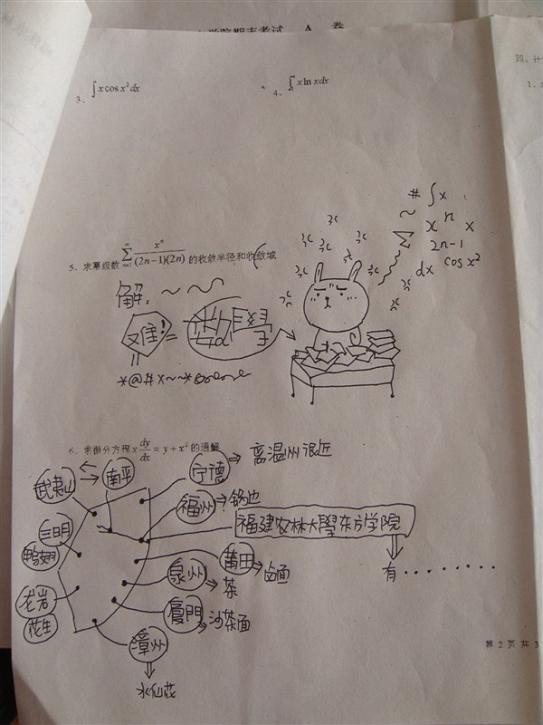 学院期末考试 A 卷
3、∫x cos x² dx
4、 x ln x dx
四、计
1、
5、求幂级数 ∑ xⁿ/(2n-1)(2n) 的收敛半径和收敛域
解:
难!
*@#x~~*
# ∫x
xⁿ x
2n-1
dx cosx²
6、求微分方程 x dy/dx = y + x² 的通解
宁德 → 离温州很近
武夷山
南平
福州 → 锅边
三明
鸭翅
福建农林大學东方学院
有········
莆田 → 卤面
泉州 → 茶
龙岩
花生
厦門 → 沙茶面
漳州
水仙花
第 2 页 共 3